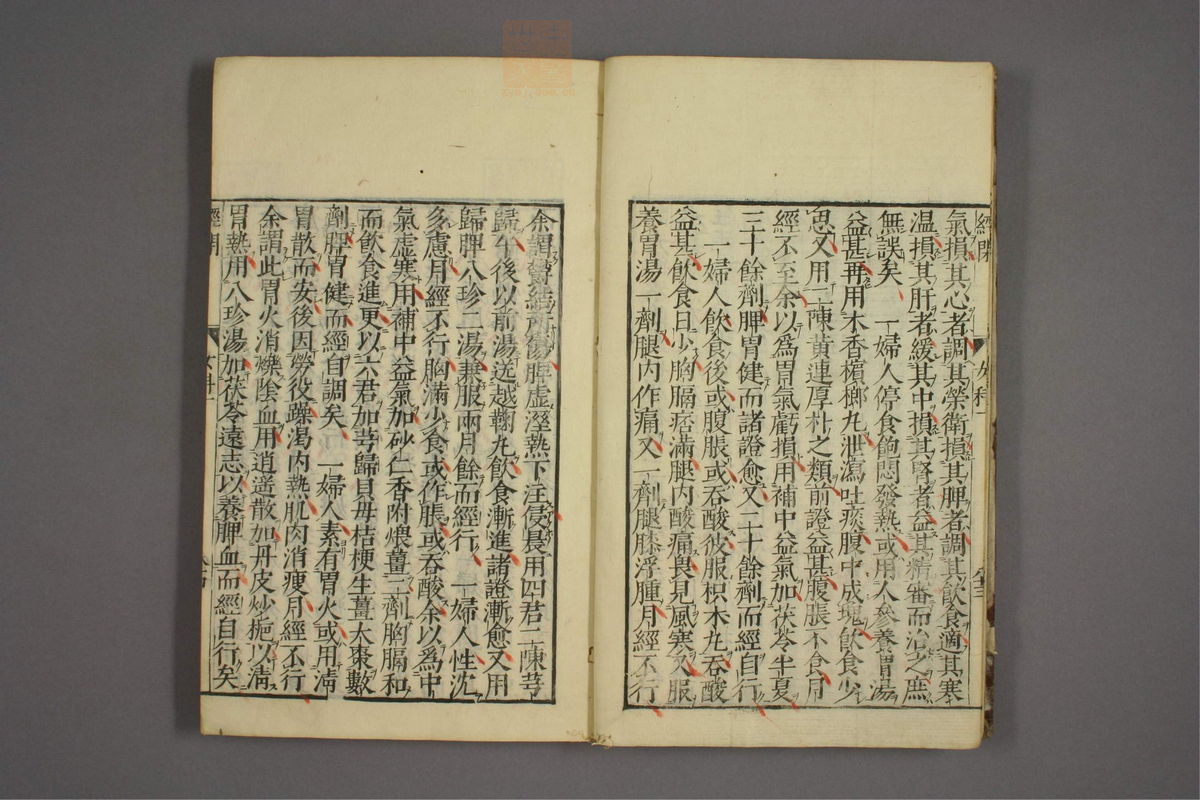 經閉
女科一
氣損其心者調其榮衛損其脾者調其飲食適其寒
溫損其肝者緩其中損其腎者益其精審而治之庶
無誤矣 一婦人停食飽悶發熱或用人參養胃湯
益甚再用木香檳榔丸泄瀉吐痰腹中成塊飲食少
思又用二陳黃連厚朴之類前證益甚腹脹不食月
經不至余以爲胃氣虧損用補中益氣加茯苓半夏
三十餘劑脾胃健而諸證愈又二十餘劑而經自行
一婦人飲食後或腹脹或吞酸彼服枳朮丸吞酸
益甚飲食日少胸膈痞滿腿內酸痛畏見風寒又服
養胃湯一劑腿內作痛又一劑腿膝浮腫月經不行
余謂鬱結所傷脾虛溼熱下注侵晨用四君二陳芎
歸午後以前湯送越鞠丸飲食漸進諸證漸愈又用
歸脾八珍二湯兼服兩月餘而經行 一婦人性沈
多慮月經不行胸滿少食或作脹或吞酸余以爲中
氣虛寒用補中益氣加砂仁香附煨薑二劑胸膈和
而飲食進更以六君加芎歸貝母桔梗生薑大棗數
劑脾胃健而經自調矣 一婦人素有胃火或用淸
胃散而安後因勞役躁渴內熱肌肉消瘦月經不行
余謂此胃火消爍陰血用逍遙散加丹皮炒梔以淸
胃熱用八珍湯加茯苓遠志以養脾血而經自行矣
經閉
女科一